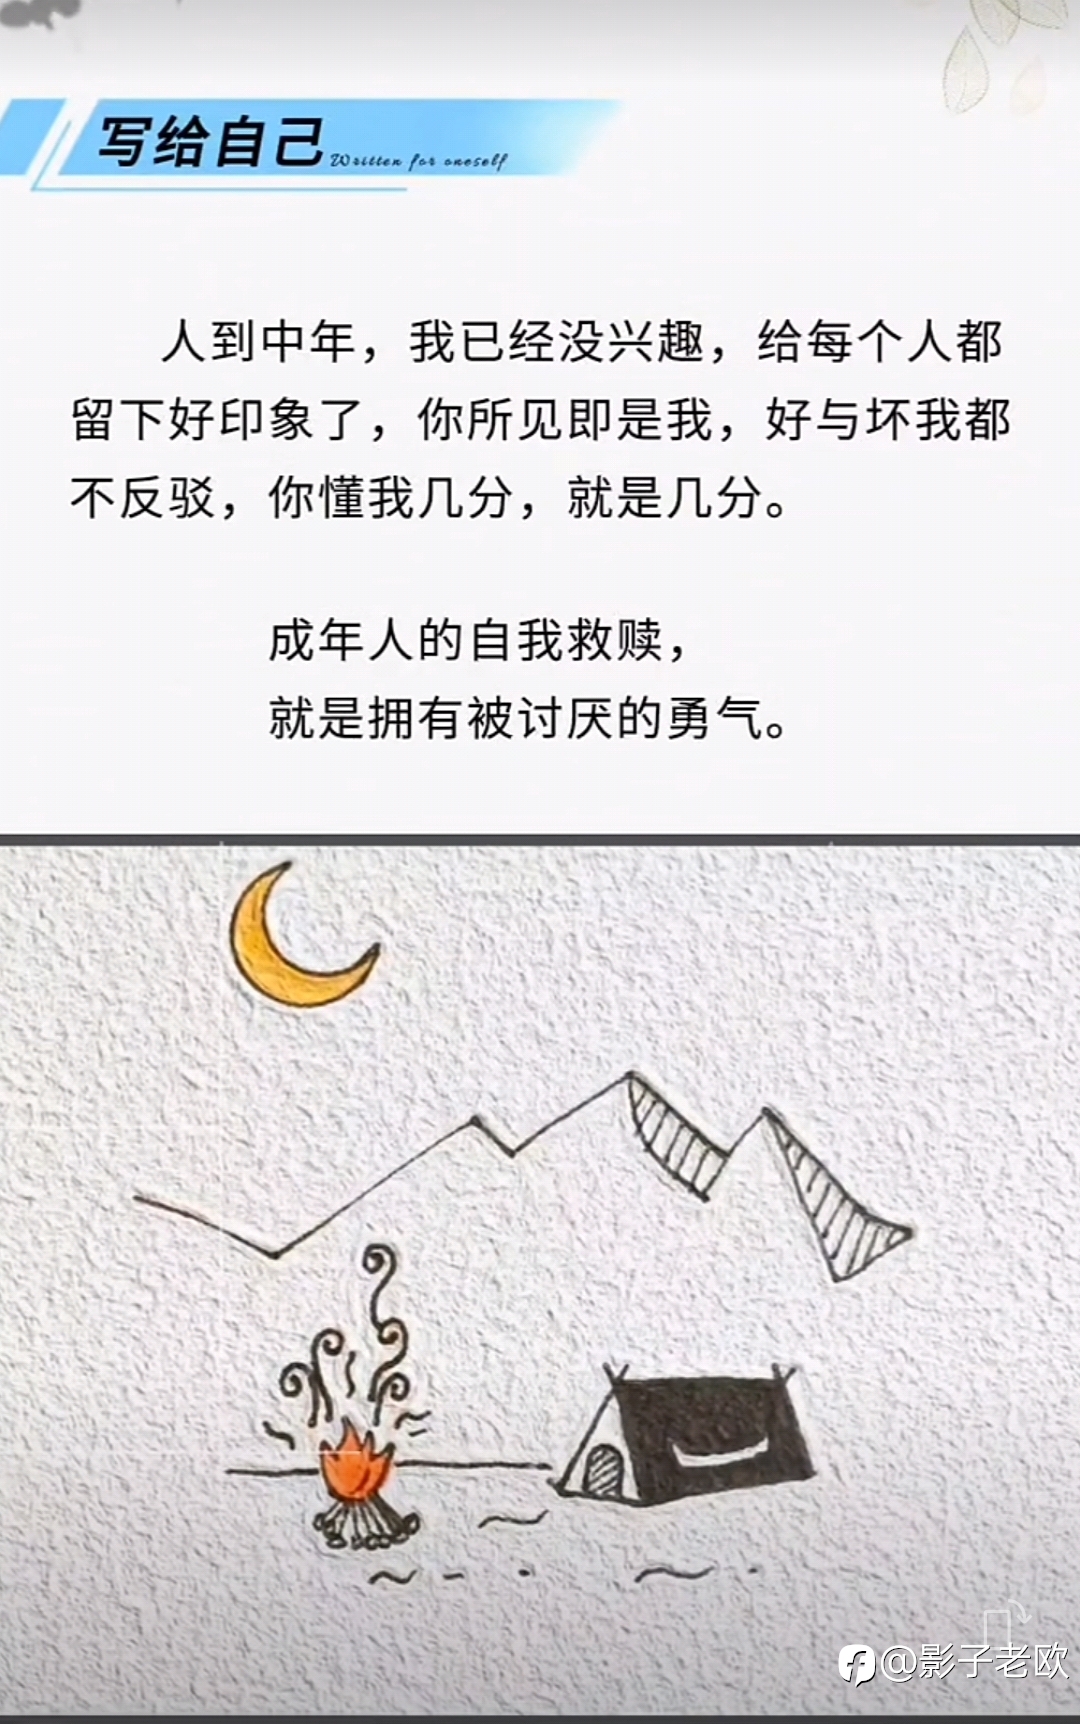 写给自己 Written for oneself
人到中年，我已经没兴趣，给每个人都
留下好印象了，你所见即是我，好与坏我都
不反驳，你懂我几分，就是几分。
成年人的自我救赎，
就是拥有被讨厌的勇气。
@影子老欧